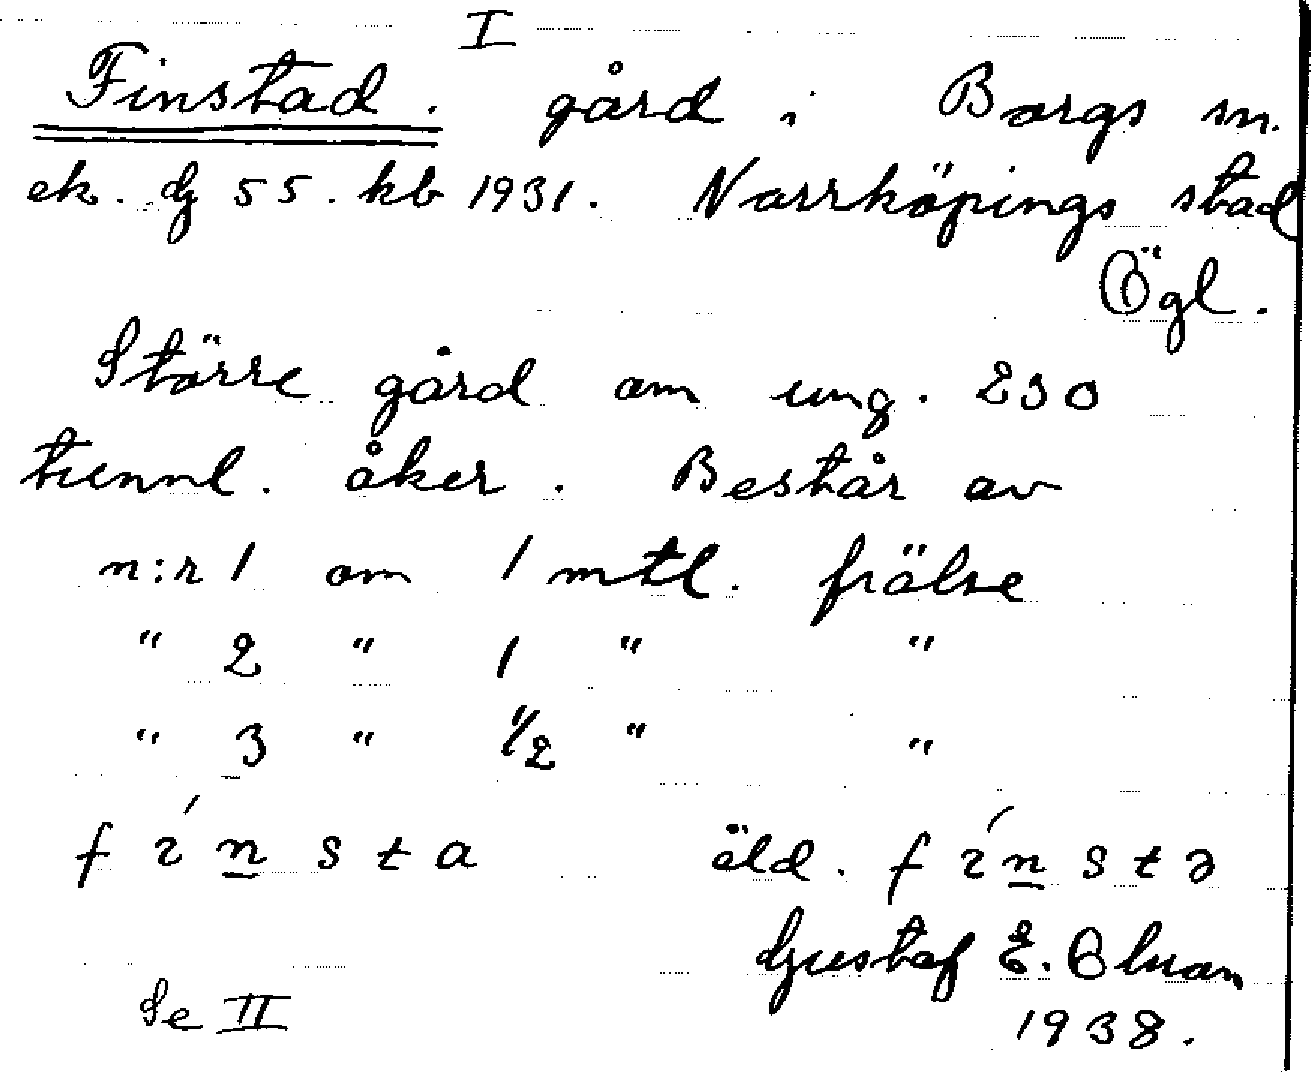 I
Finstad. gård i Borgs sn.
ek. dj 55. kb 1931. Norrköpings stad
Ögl.
Större gård om ung. 230
tunnl. åker. Består av
n:r 1 om 1 mtl. frälse
" 2 " 1 " "
" 3 " 1/2 " "
fi´nsta äld. fi´nstə
Gustaf E. Olsson
1938.
Se II